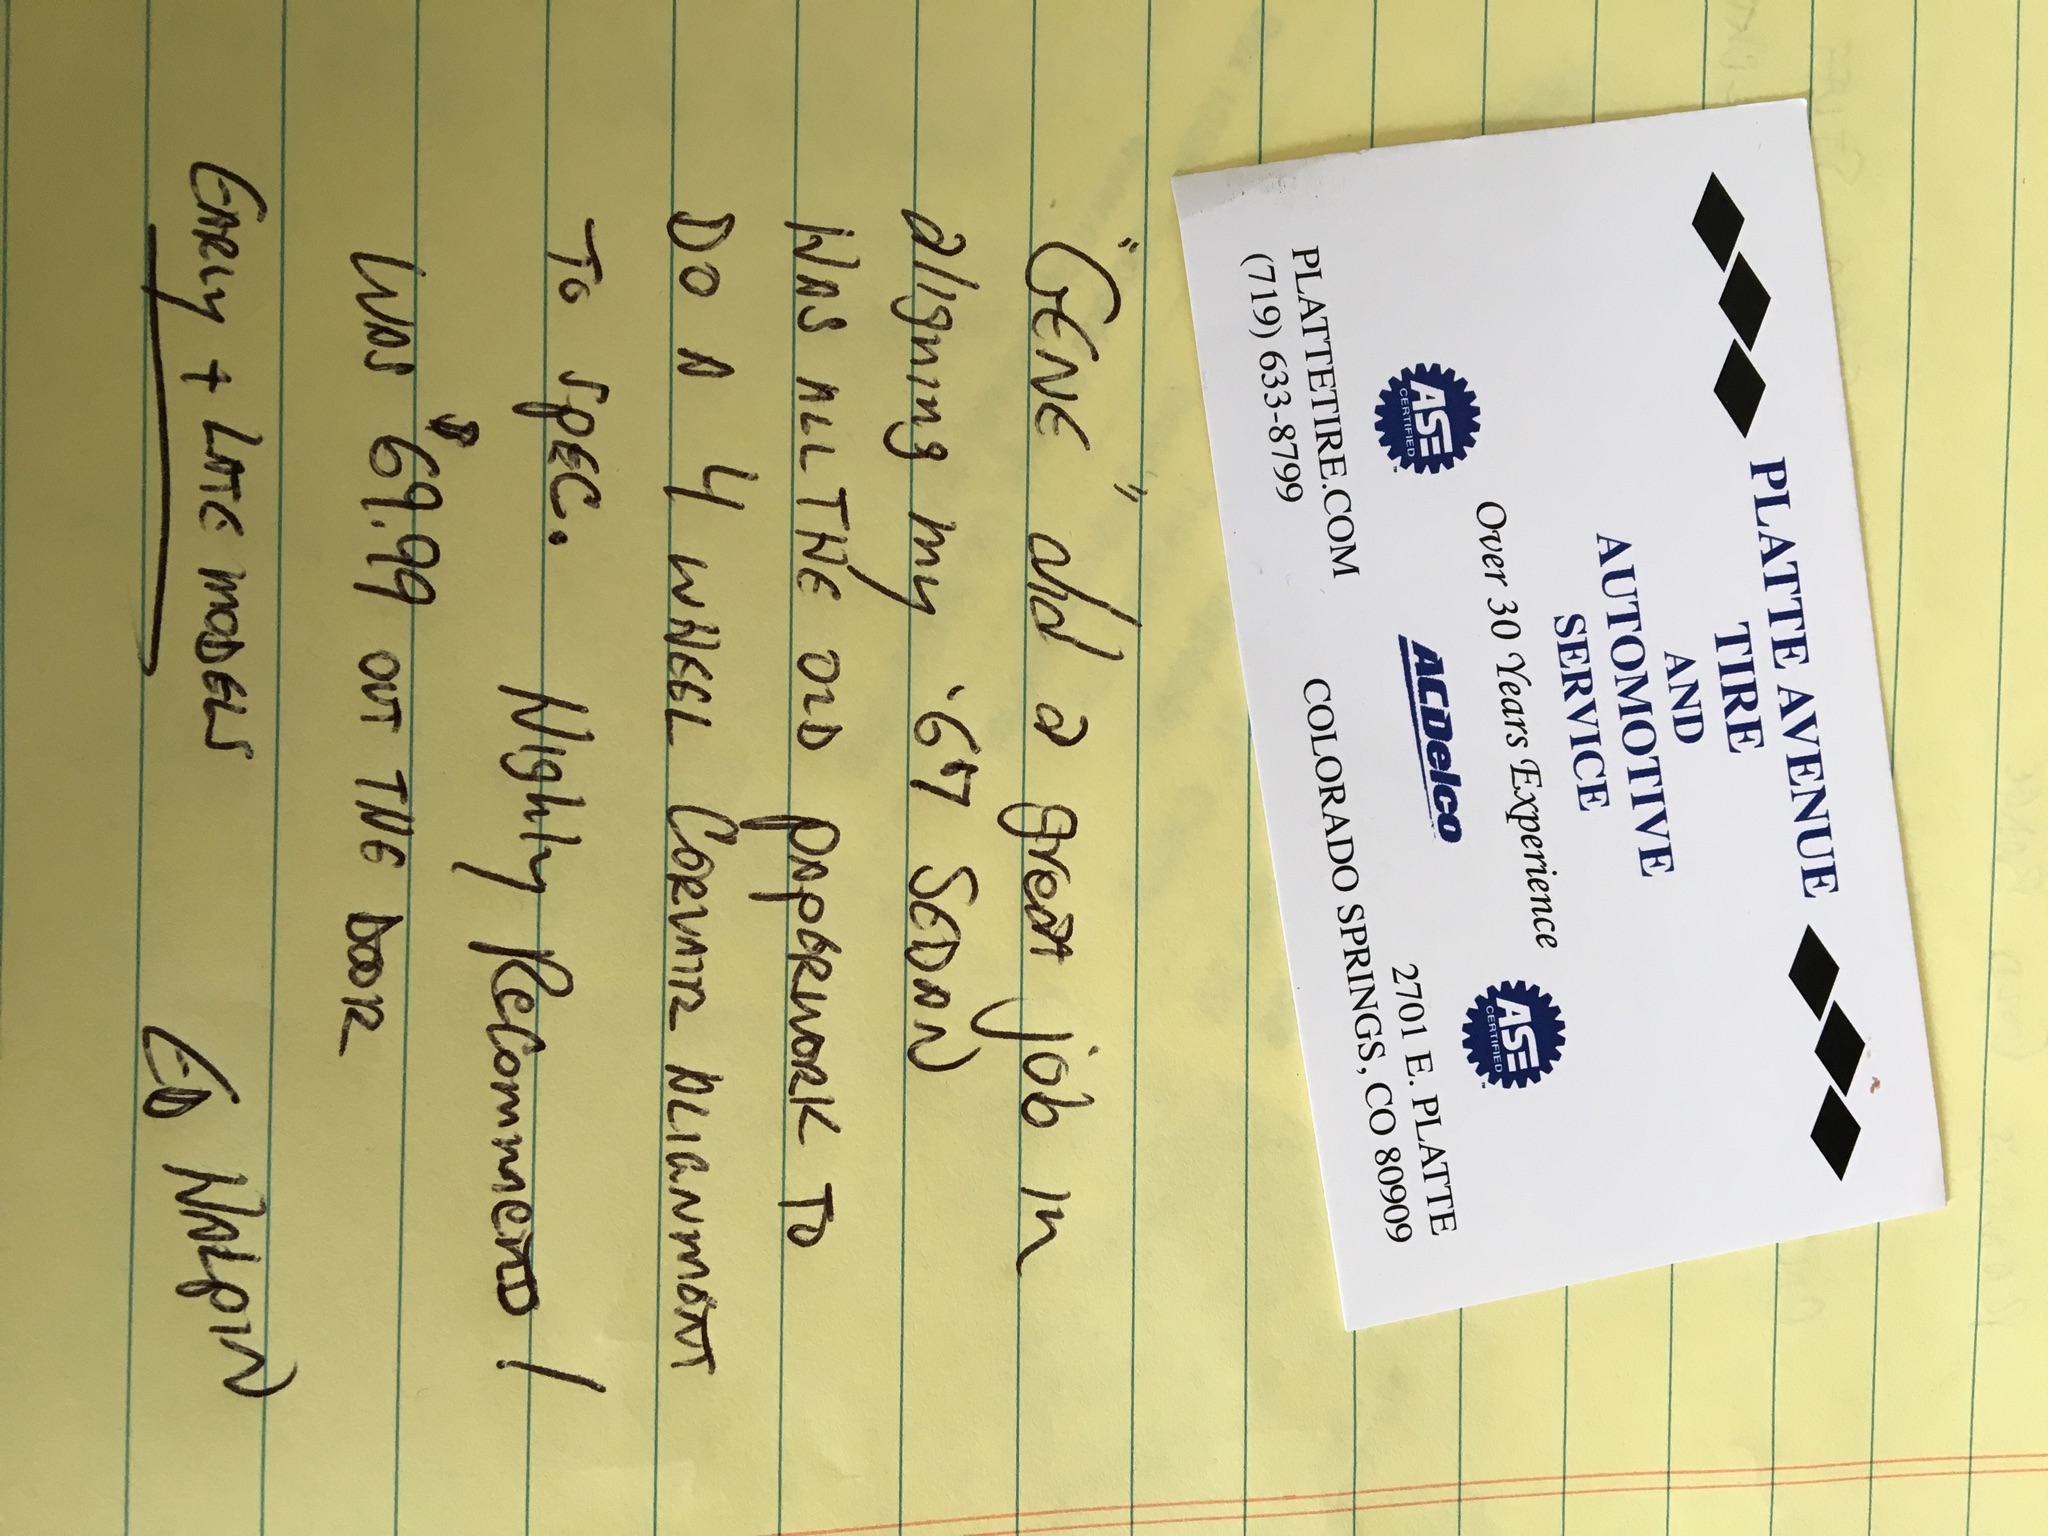 PLATTE AVENUE
TIRE
AND
AUTOMOTIVE
SERVICE
Over 30 Years Experience
ASE
CERTIFIED
ACDelco
ASE
CERTIFIED
PLATTETIRE.COM
(719) 633-8799
2701 E. PLATTE
COLORADO SPRINGS, CO 80909
"GENE" did a great job in
aligning my '67 SEDAN
HAS ALL THE OLD PAPERWORK TO
DO A 4 WHEEL CORVAIR ALIGNMENT
TO SPEC. Highly RECOMMEND!
WAS $69.99 OUT THE DOOR
EARLY + LATE MODELS
ED HALPIN